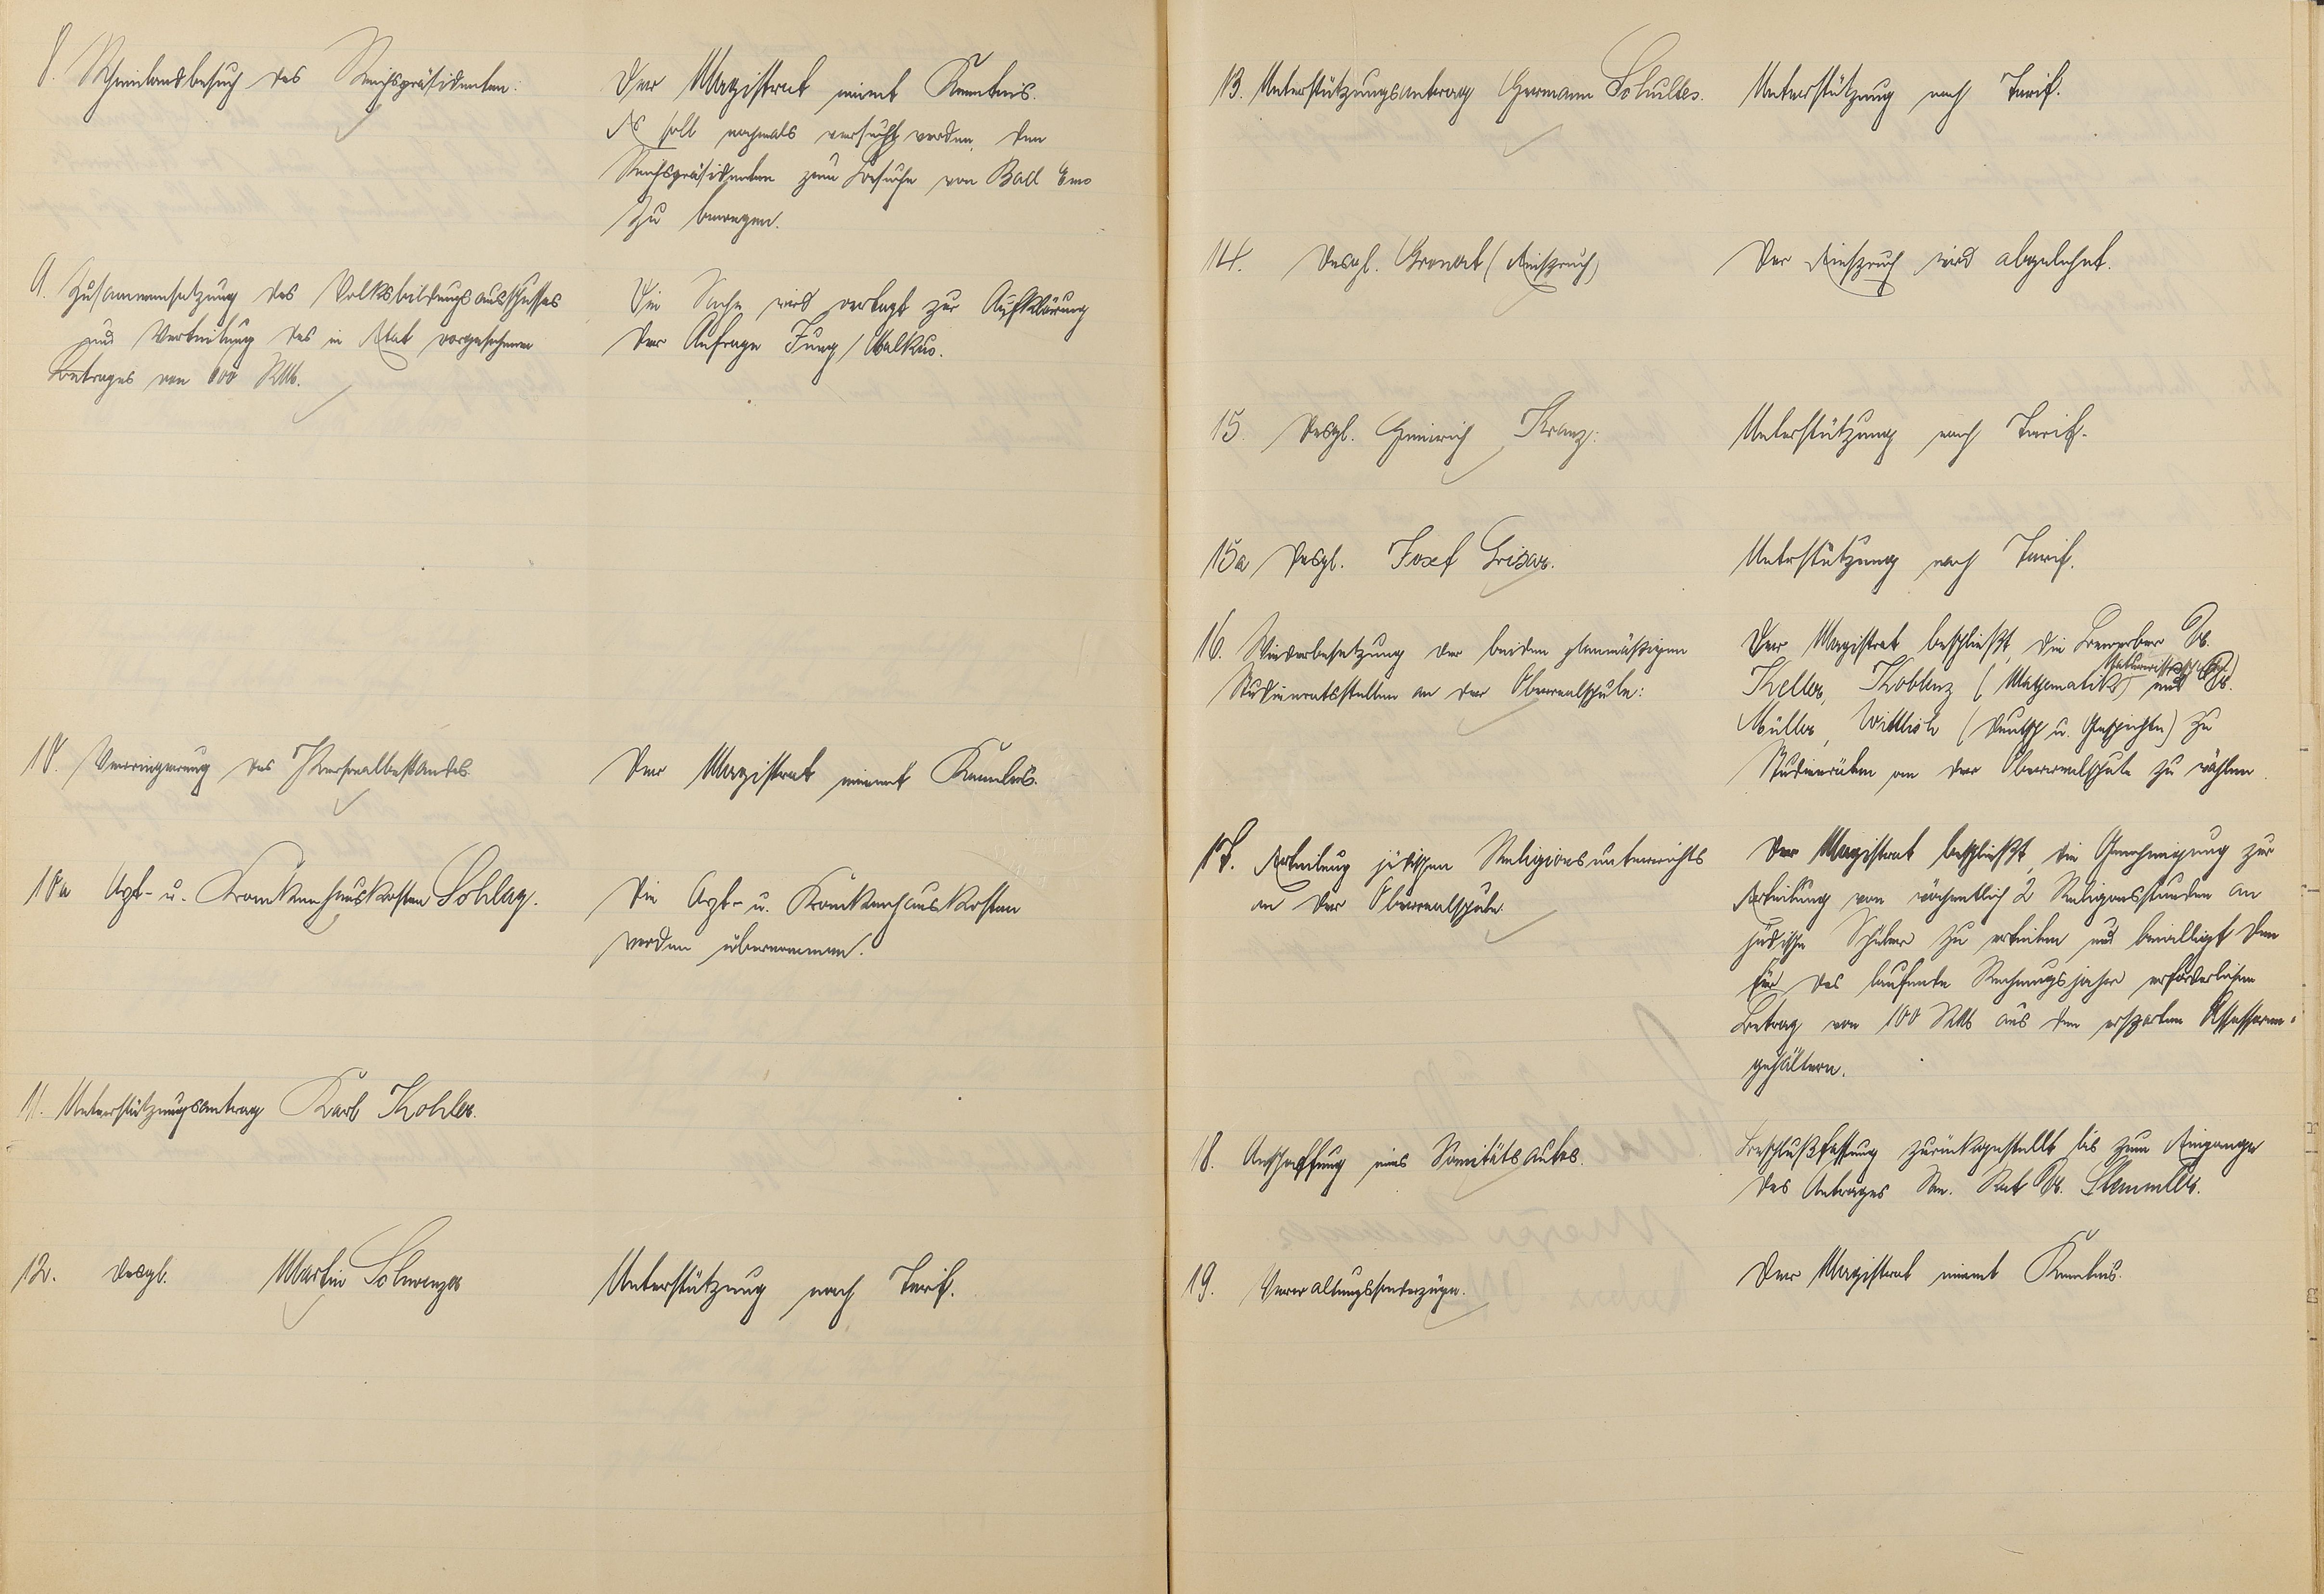 8. Rheinlandbesuch des Reichspräsidenten:
Der Magistrat nimmt Kenntnis.
Es soll nochmals versucht werden, den
Reichspräsidenten zum Besuche von Bad Ems
zu bewegen.
9. Zusammensetzung des Volksbildungsausschusses
und Verteilung des im Etat vorgesehenen
Betrages von 600 RM.
Die Sache wird vertagt zur Aufklärung
der Anfrage Jung/Balkus.
10. Verringerung des Personalbestandes.
Der Magistrat nimmt Kenntnis.
10a Arzt- u. Krankenhauskosten Schlag.
Die Arzt- u. Krankenhauskosten
werden übernommen.
11. Unterstützungsantrag Karl Kohler.
12. desgl. Martin Schwenzer
Unterstützung nach Tarif.
13. Unterstützungsantrag Hermann Schultes.
Unterstützung nach Tarif.
14. Desgl. Gronat (Einspruch)
Der Einspruch wird abgelehnt.
15. Desgl. Heinrich Kranz:
Unterstützung nach Tarif.
15a Desgl. Josef Grisar.
Unterstützung nach Tarif.
16. Wiederbesetzung der beiden planmäßigen
Studienratsstellen an der Oberrealschule:
Der Magistrat beschließt, die Bewerber Dr.
Keller, Koblenz (Mathematik) und Dr.
Müller, Wittlich (Deutsch u. Geschichte) zu
Studienräten an der Oberrealschule zu wählen.
17. Erteilung jüdischen Religionsunterrichts
an der Oberrealschule.
Der Magistrat beschließt, die Genehmigung zur
Erteilung von wöchentlich 2 Religionsstunden an
jüdische Schüler zu erteilen und bewilligt den
für das laufende Rechnungsjahr erforderlichen
Betrag von 100 RM aus den ersparten Assessoren-
gehältern.
18. Anschaffung eines Sanitätsautos.
Beschlußfassung zurückgestellt bis zum Eingange
des Antrages San. Rat Dr. Stemmler.
19. Verwaltungssonderzüge.
Der Magistrat nimmt Kenntnis.